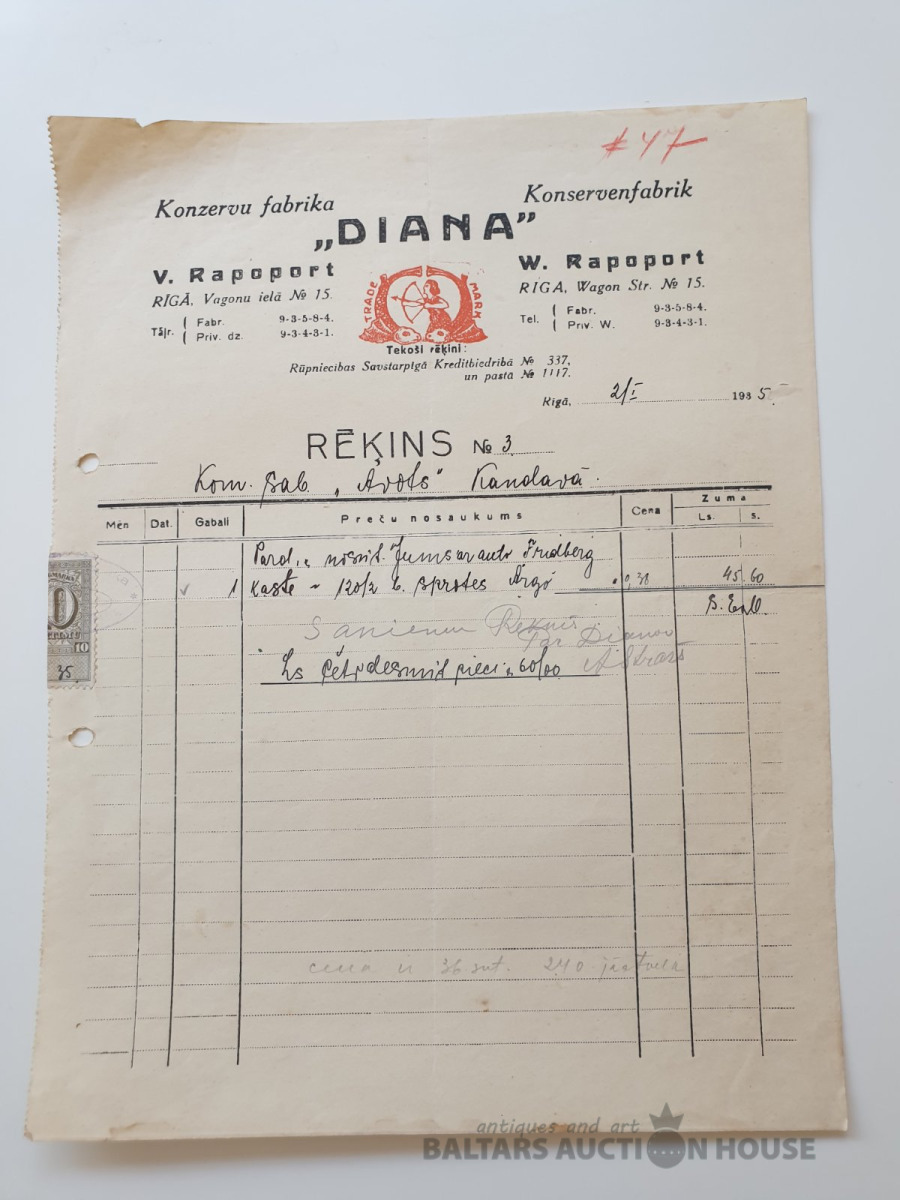 # 47
Konzervu fabrika
Konservenfabrik
„DIANA”
V. Rapoport
RĪGĀ, Vagonu ielā № 15.
Tāļr. Fabr. 9-3-5-8-4.
Priv. dz. 9-3-4-3-1.
W. Rapoport
RIGA, Wagon Str. № 15.
Tel. Fabr. 9-3-5-8-4.
Priv. W. 9-3-4-3-1.
TRADE MARK
Tekoši rēķini:
Rūpniecības Savstarpīgā Kreditbiedrībā № 337,
un pasta № 1117.
Rīgā, 2/I 1935.
RĒĶINS № 3
Kom. sab. „Avots” Kandavā.
Mēn Dat. Gabali Preču nosaukums Cena Zuma
Ls. s.
Jums ar auto Fridberg
1 kaste 120/2 sprotes 0,38 45 60
10
35.
Ls četrdesmit pieci 60/00
cena ir 36 snt. 240
antiques and art
BALTARS AUCTION HOUSE